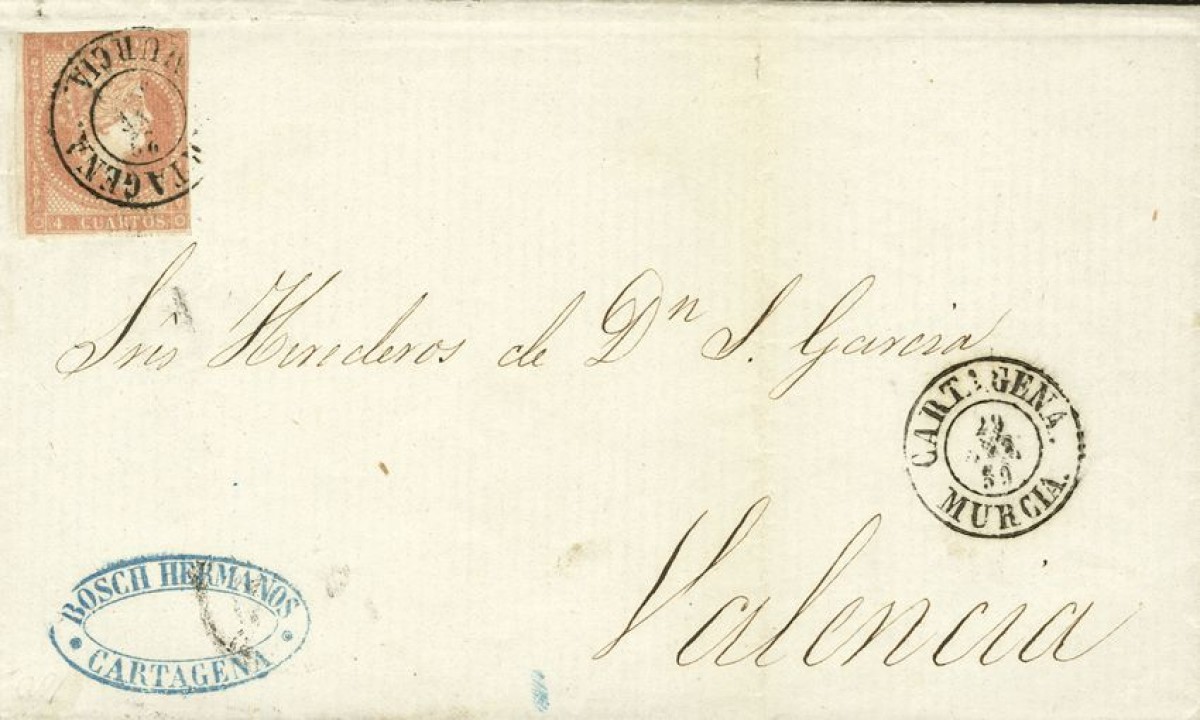 MURCIA.
CARTAGENA.
4 CUARTOS
Sres Herederos de Dn S. Garcia
CARTAGENA.
59
MURCIA.
Valencia
BOSCH HERMANOS
CARTAGENA